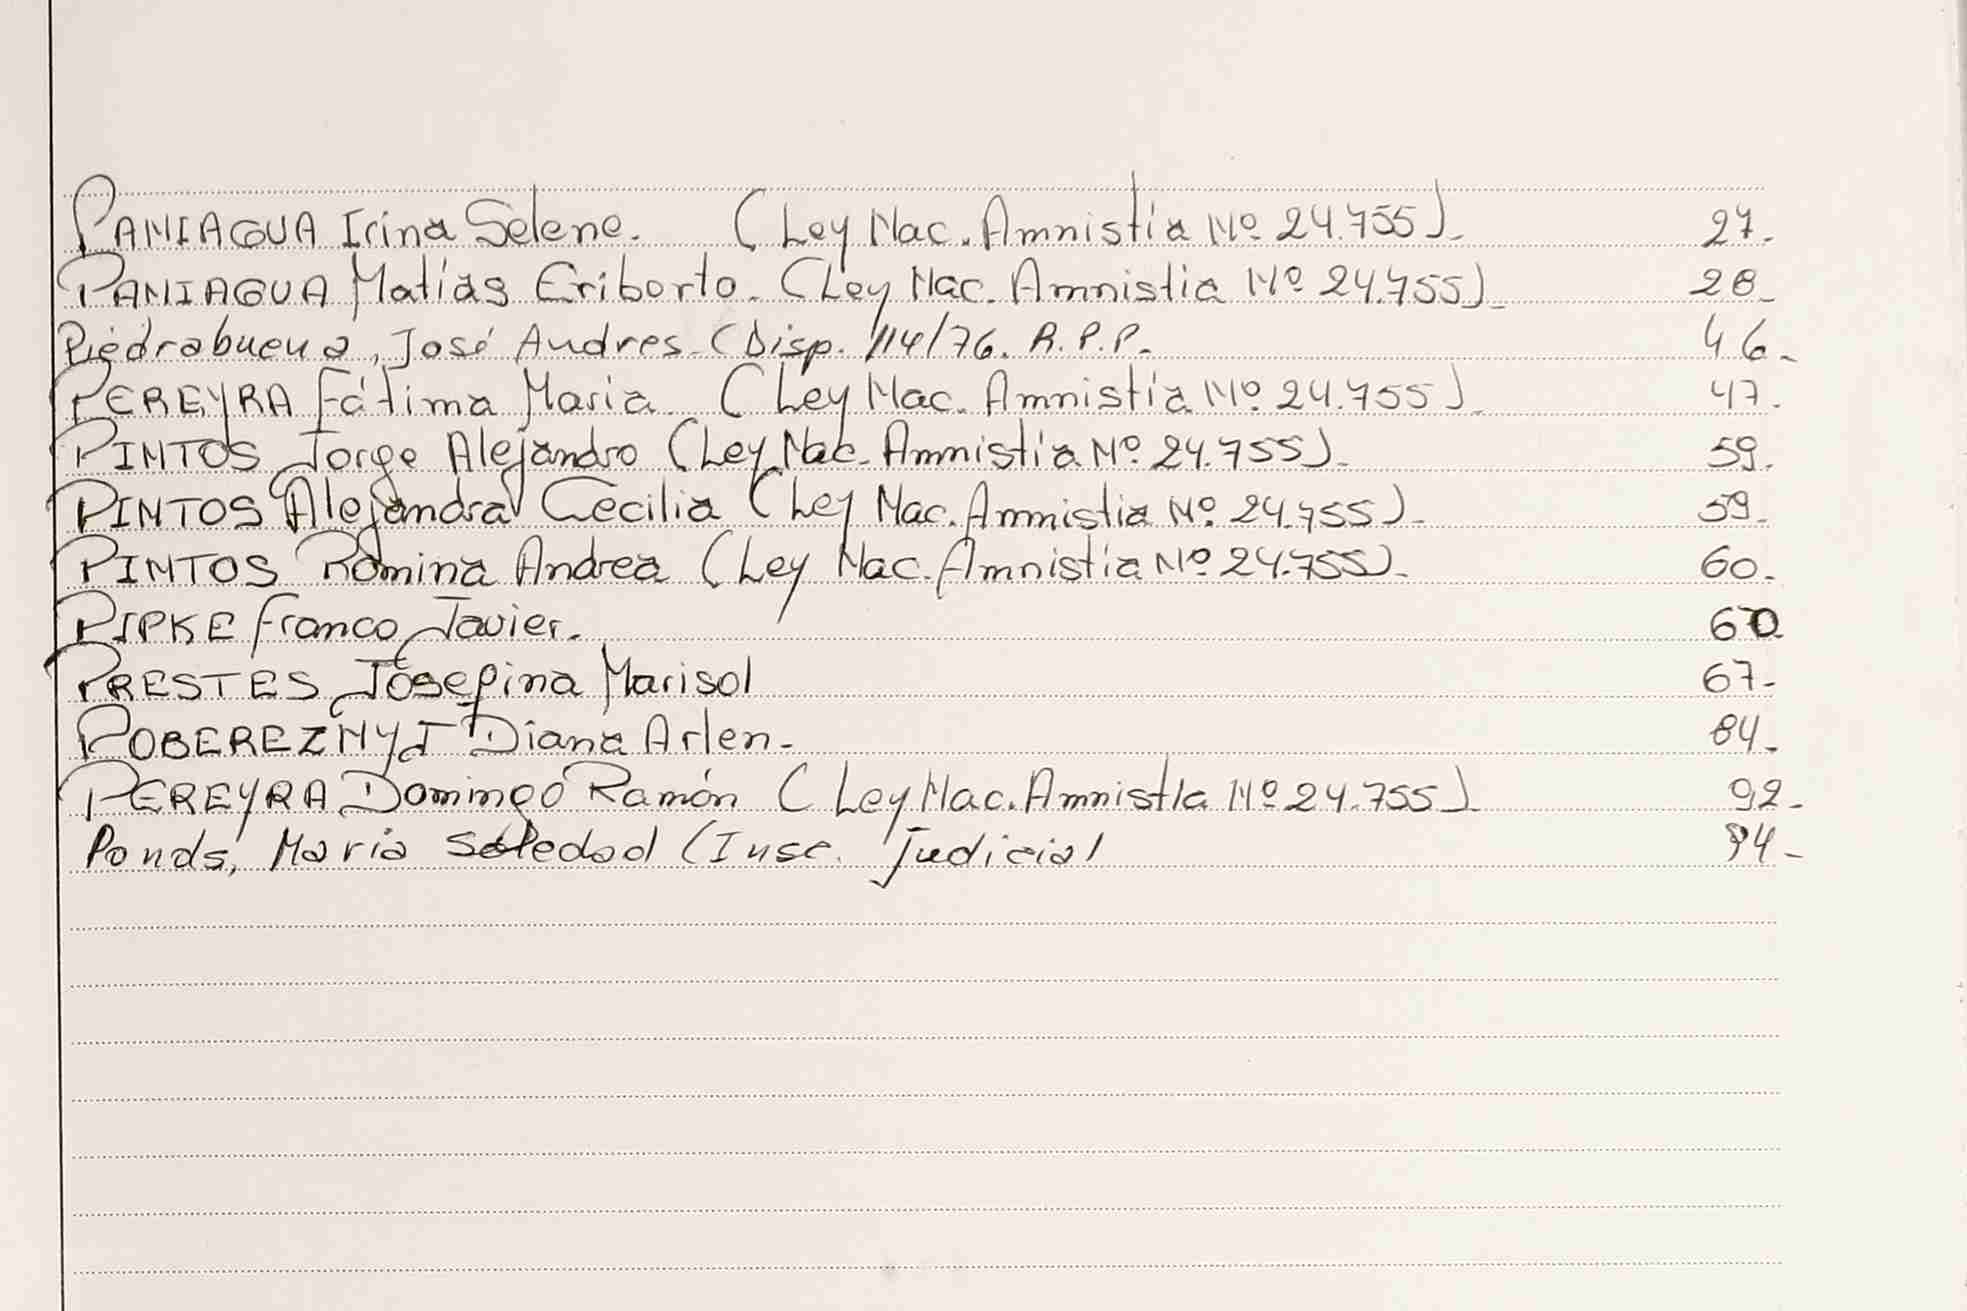 PANIAGUA Irina Selene. (Ley Nac. Amnistía Nº 24.755). 27.
PANIAGUA Matías Eriberto. (Ley Nac. Amnistia Nº 24.755). 28_
Piedrabuena, José Andres (Disp. 114/76. R.P.P. 46_
PEREYRA Fátima Maria (Ley Nac. Amnistía Nº 24.755). 47.
PINTOS Jorge Alejandro (Ley Nac. Amnistía Nº 24.755). 59.
PINTOS Alejandra Cecilia (Ley Nac. Amnistia Nº 24.755). 59.
PINTOS Romina Andrea (Ley Nac. Amnistía Nº 24.755). 60.
PIPKE Franco Javier. 60
PRESTES Josefina Marisol 67-
POBEREZNYJ Diana Arlen- 84.
PEREYRA Domingo Ramón (Ley Nac. Amnistía Nº 24.755) 92-
Ponds, Maria Soledad (Insc. Judicial 94-